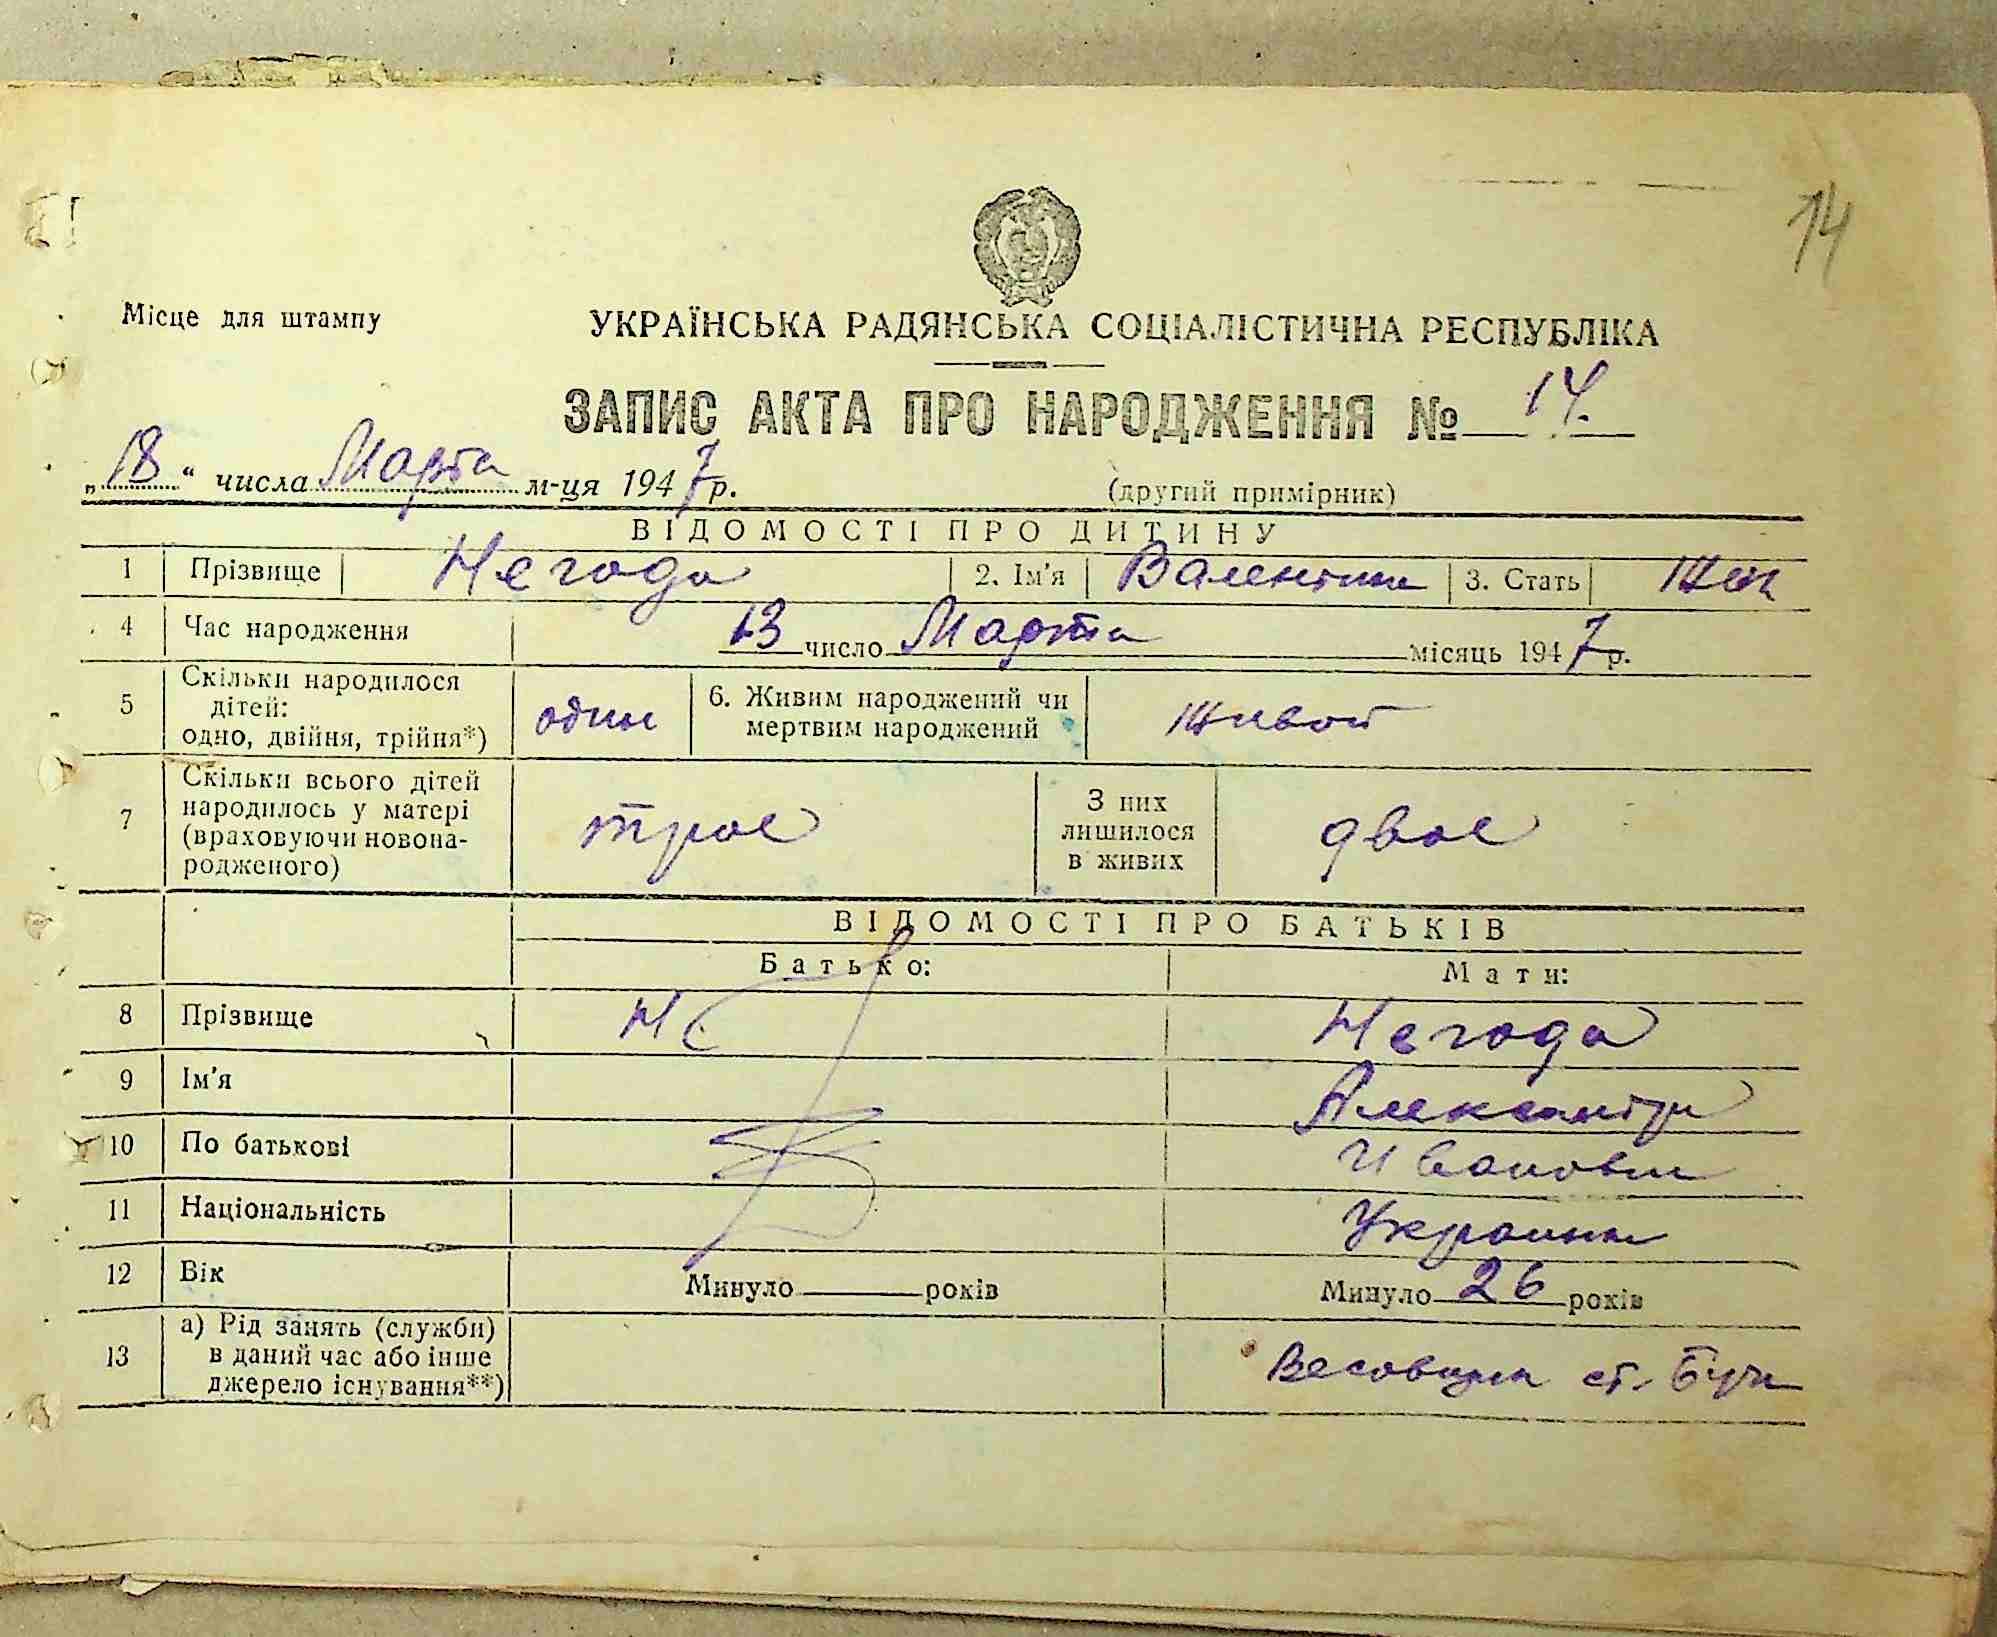 14
Місце для штампу
УКРАЇНСЬКА РАДЯНСЬКА СОЦІАЛІСТИЧНА РЕСПУБЛІКА
ЗАПИС АКТА ПРО НАРОДЖЕННЯ № 14.
„18“ числа Марта м-ця 1947р.
(другий примірник)
ВІДОМОСТІ ПРО ДИТИНУ
1 Прізвище Негода 2. Ім'я Валентина 3. Стать жен
4 Час народження 13 число Марта місяць 1947р.
5 Скільки народилося дітей: одно, двійня, трійня*) один 6. Живим народжений чи мертвим народжений живой
7 Скільки всього дітей народилось у матері (враховуючи новонародженого) трое З них лишилося в живих двое
ВІДОМОСТІ ПРО БАТЬКІВ
Батько: Мати:
8 Прізвище Не Негода
9 Ім'я Александра
10 По батькові Ивановна
11 Національність Украинка
12 Вік Минуло років Минуло 26 років
13 а) Рід занять (служби) в даний час або інше джерело існування**) Весовщик ст. Буча